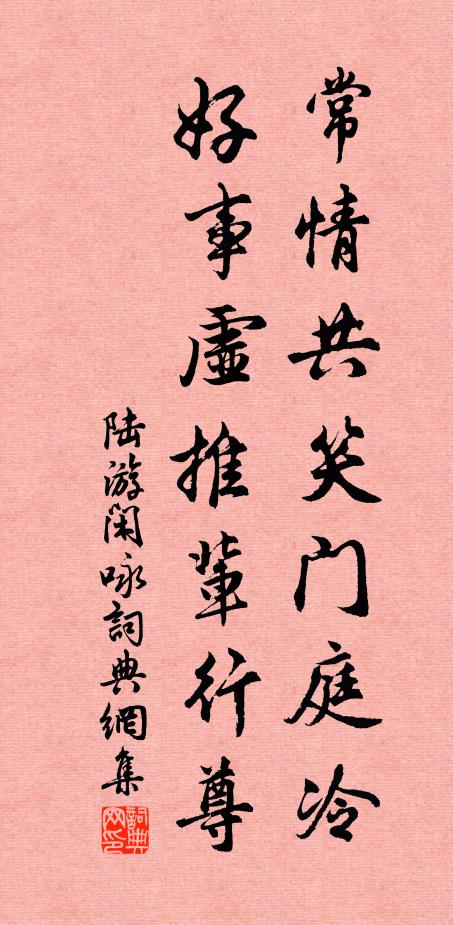 常情共笑门庭冷
好事虚推辈行尊
陆游闲咏詞典網集
詞典网印